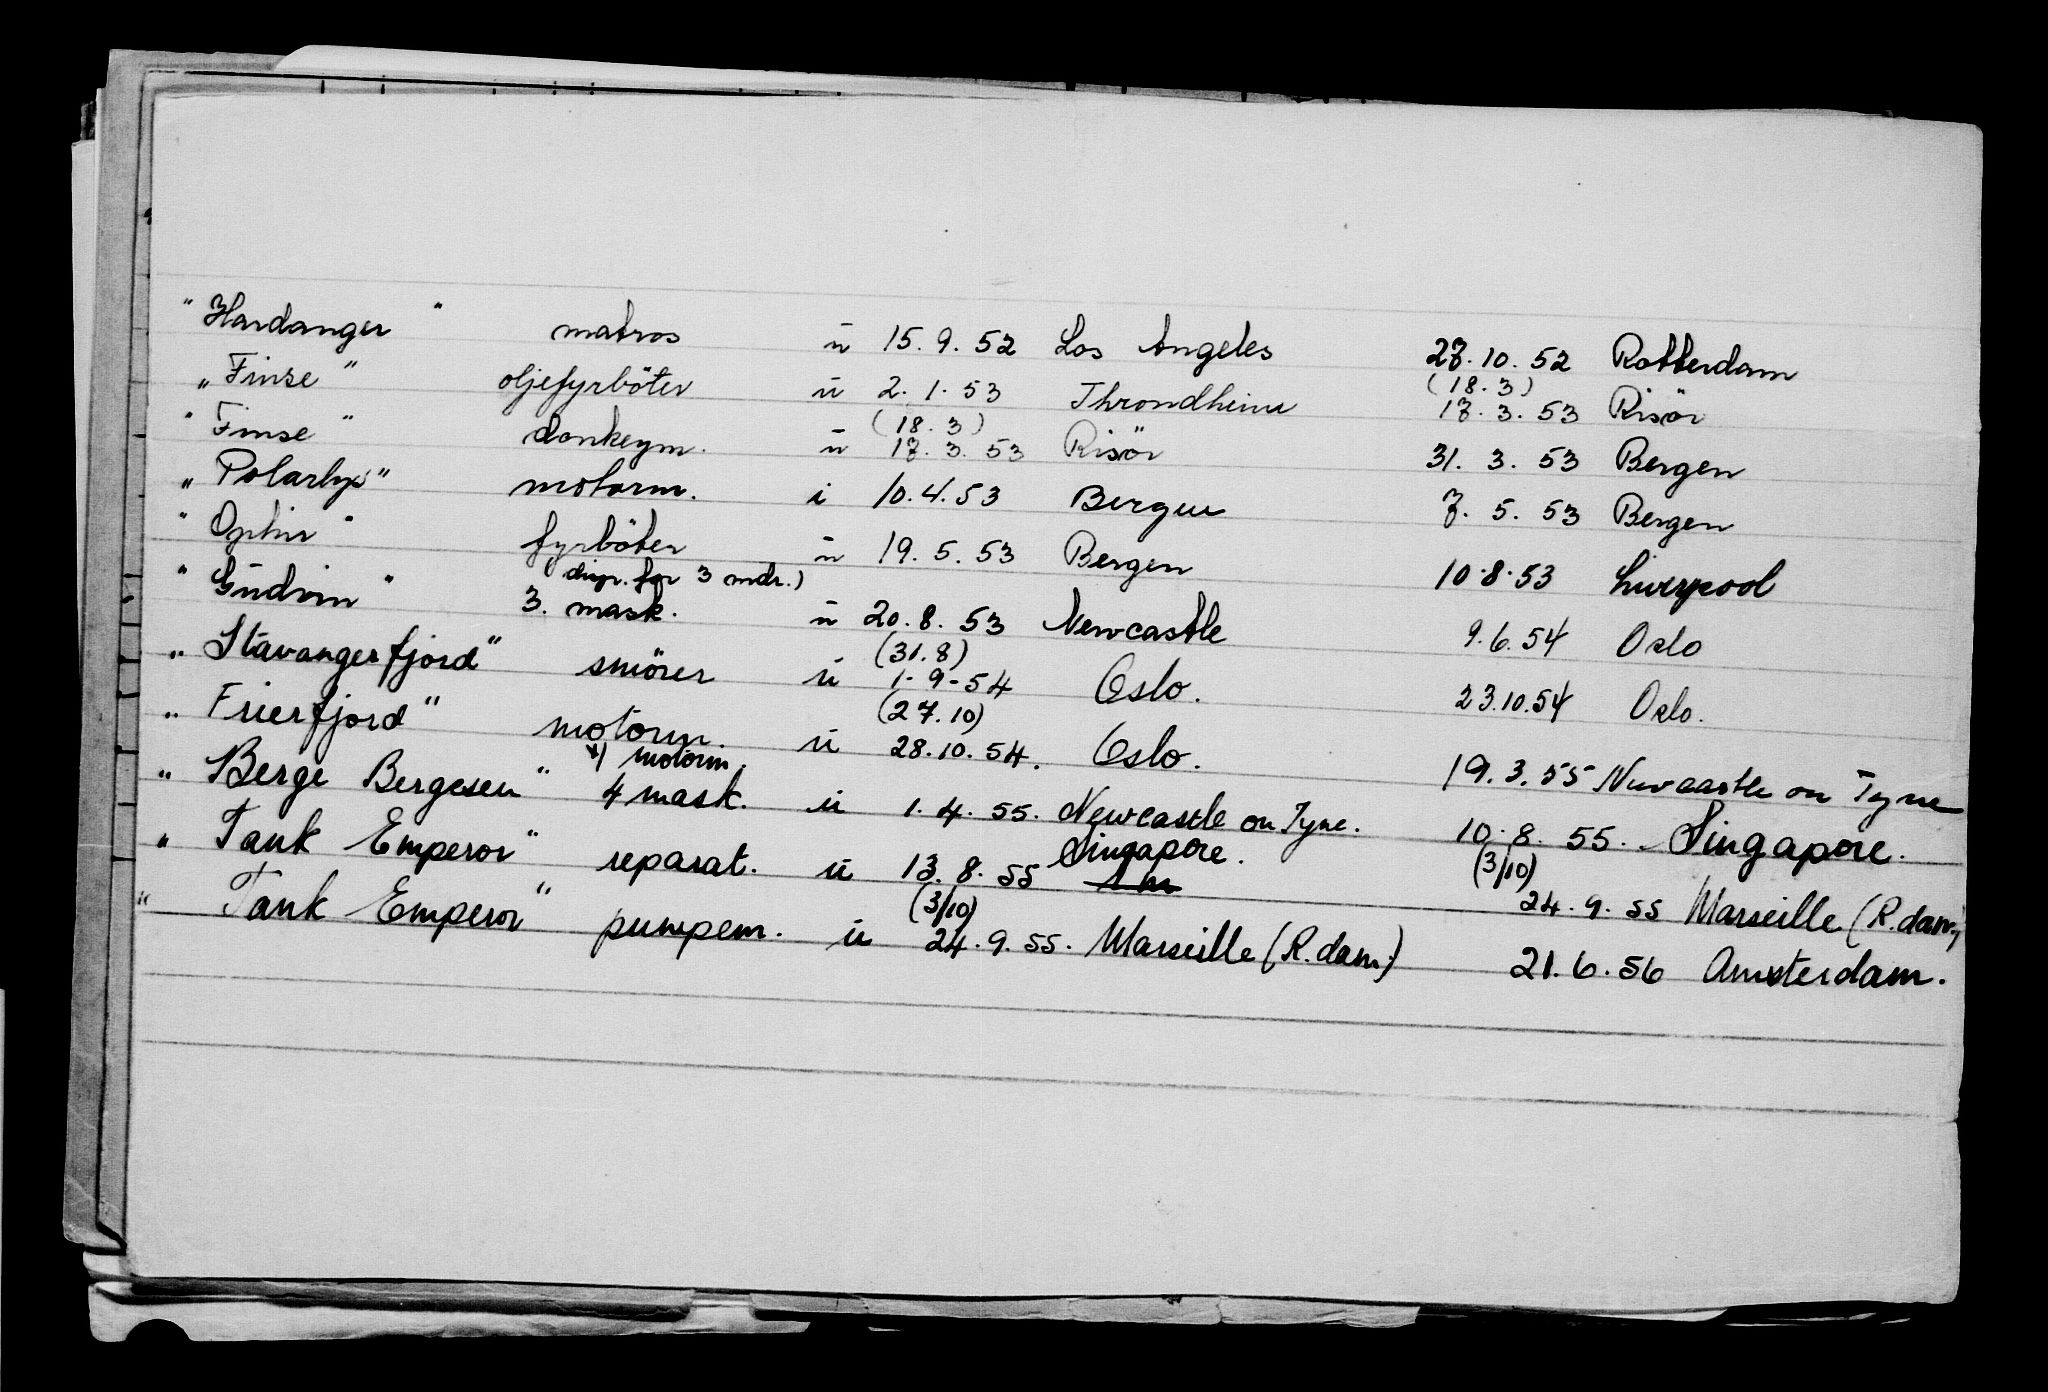 "Hardanger" matros ü 15.9.52 Los Angeles 27.10.52 Rotterdam
(18.3)
„Finse" oljefyrböter ü 2.1.53 Throndheim 17.3.53 Risör
(18.3)
"Finse" donkeym. ü 17.3.53 Risör 31.3.53 Bergen
„Polarlys" motorm. i 10.4.53 Bergen 7.5.53 Bergen
"Ophir" fyrböter ü 19.5.53 Bergen 10.8.53 Liverpool
disp. for 3 mdr.)
"Gudvin" 3. mask. ü 20.8.53 Newcastle 9.6.54 Oslo
(31.8)
„Stavangerfjord" smörer ü 1-9-54 Oslo. 23.10.54 Oslo.
(27.10)
„Frierfjord" motorm. ü 28.10.54. Oslo. 19.3.55 Newcastle on Tyne
*) motorm.
„Berge Bergesen" 4 mask. ü 1.4.55. Newcastle on Tyne. 10.8.55. Singapore.
Singapore. (3/10)
„Tank Emperor" reparat. ü 13.8.55 24.9.55 Marseille (R.dam.)
(3/10)
"Tank Emperor" pumpem. ü 24.9.55. Marseille (R.dam.) 21.6.56 Amsterdam.